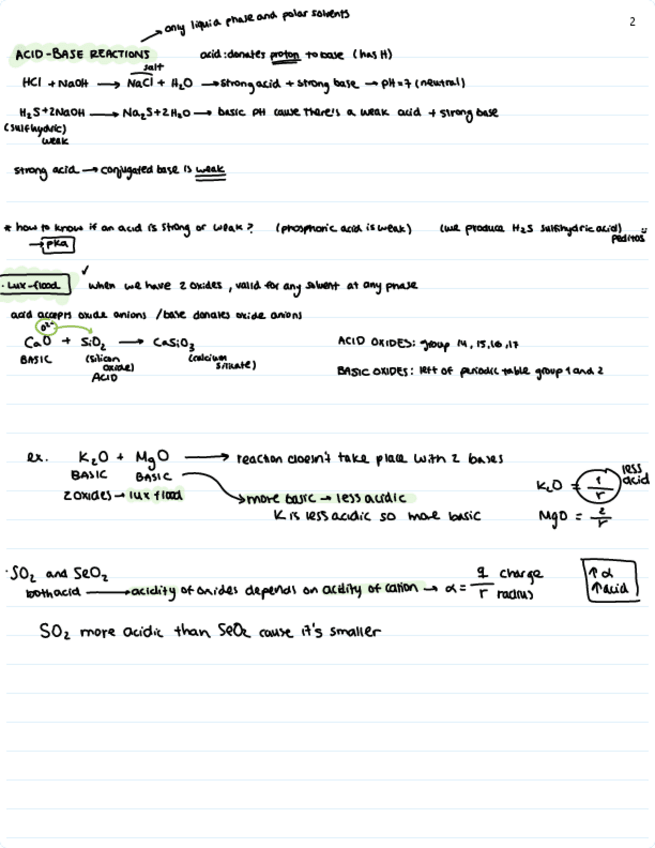 only liquid phase and polar solvents
2
ACID-BASE REACTIONS acid: donates proton to base (has H)
salt
HCl + NaOH → NaCl + H₂O → strong acid + strong base → pH=7 (neutral)
H₂S + 2NaOH → Na₂S + 2H₂O → basic pH cause there's a weak acid + strong base
(sulfhydric)
weak
strong acid → conjugated base is weak
* how to know if an acid is strong or weak? (phosphoric acid is weak) (we produce H₂S sulfhydric acid)
→ pka
peditos
· Lux-flood ✓ when we have 2 oxides, valid for any solvent at any phase
acid accepts oxide anions / base donates oxide anions
O²⁻
CaO + SiO₂ → CaSiO₃ ACID OXIDES: group 14, 15, 16, 17
BASIC (silicon oxide) (calcium silicate)
ACID
BASIC OXIDES: left of periodic table group 1 and 2
ex. K₂O + MgO → reaction doesn't take place with 2 bases
BASIC BASIC
2 oxides → lux flood
more basic → less acidic
K is less acidic so more basic
K₂O = 1/r less acid
MgO = 2/r
· SO₂ and SeO₂
both acid → acidity of oxides depends on acidity of cation → α = q/r charge radius
↑α
↑acid
SO₂ more acidic than SeO₂ cause it's smaller